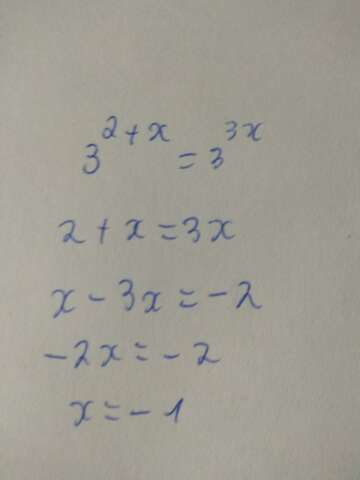 3^{2+x} = 3^{3x}
2 + x = 3x
x - 3x = -2
-2x = -2
x = -1